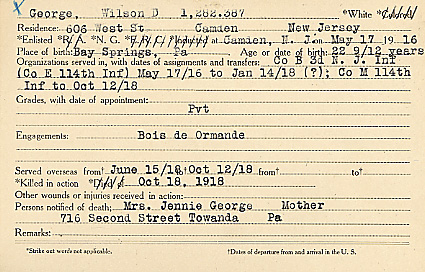 X George, Wilson D 1,282.387 *White *Colored
Residence: 606 West St. Camden New Jersey
*Enlisted *R.A. *N. G. at Camden, N. J. on May 17 1916
Place of birth: Bay Springs, Pa Age or date of birth: 22 9/12 years
Organizations served in, with dates of assignments and transfers: Co B 3d N. J. Inf
(Co E 114th Inf) May 17/16 to Jan 14/18 (?); Co M 114th
Inf to Oct 12/18
Grades, with date of appointment:
Pvt
Engagements: Bois de Ormande
Served overseas from† June 15/18 †Oct 12/18 from† to†
*Killed in action *Died of Oct 18, 1918
Other wounds or injuries received in action:
Persons notified of death: Mrs. Jennie George Mother
716 Second Street Towanda Pa
Remarks:
*Strike out words not applicable. †Dates of departure from and arrival in the U. S.